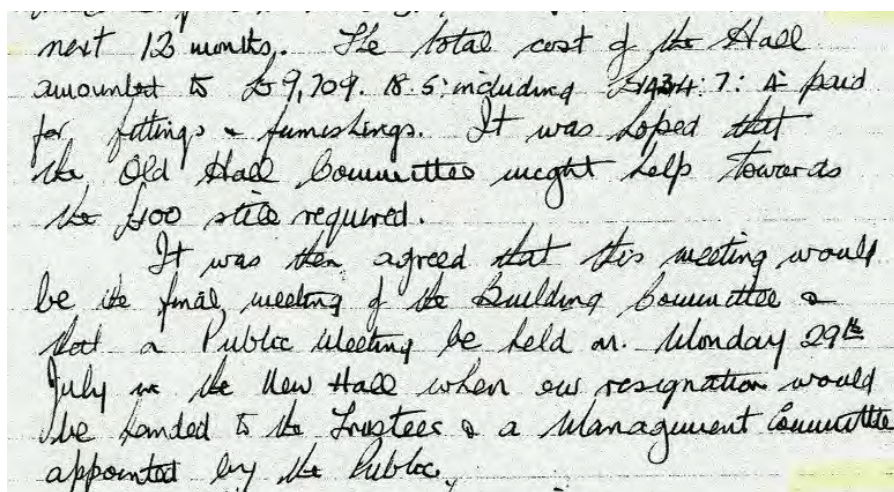 next 12 months. The total cost of the Hall
amounted to £9,709. 18. 5: including £1434: 7: 4 paid
for fittings & furnishings. It was hoped that
the Old Hall Committee might help towards
the £100 still required.
It was then agreed that this meeting would
be the final meeting of the Building Committee &
that a Public Meeting be held on. Monday 29th
July in the New Hall when our resignation would
be handed to the Trustees & a Management Committee
appointed by the Public.